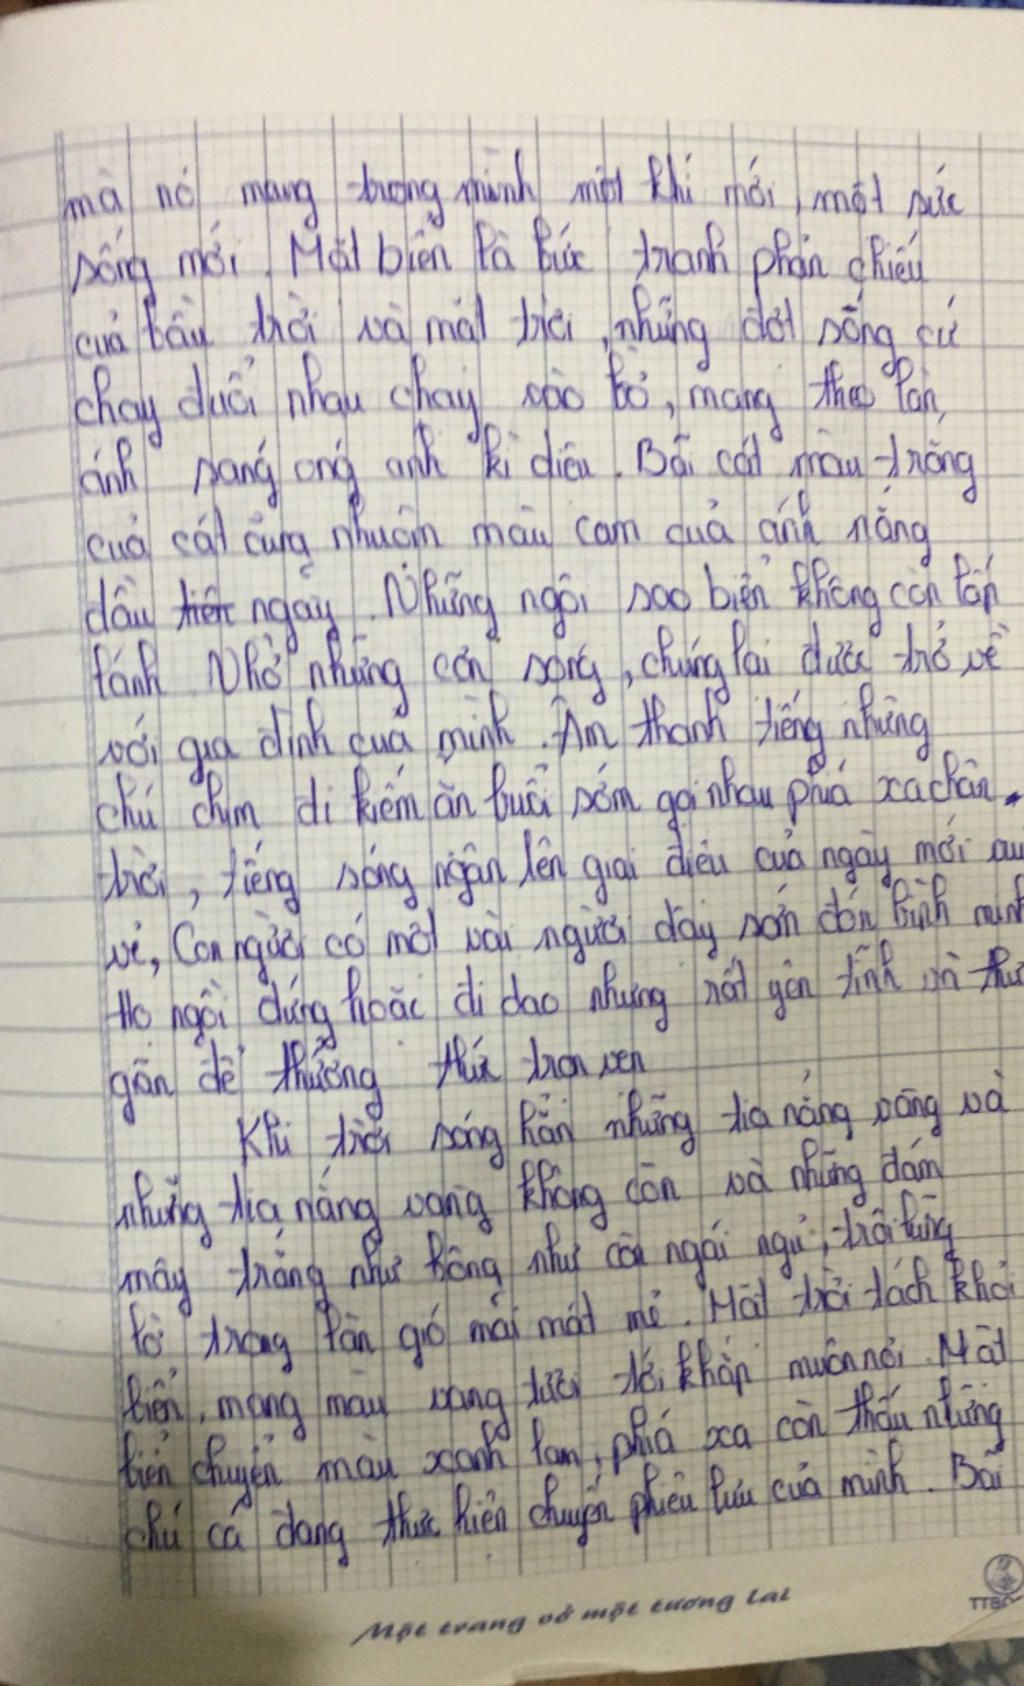 mà nó mang trong mình một khí mới, một sức
sống mới. Mặt biển là bức tranh phản chiếu
của bầu trời và mặt trời, những đợt sống cứ
chạy đuổi nhau chạy vào bờ, mang theo làn
ánh sáng óng ánh kì diệu. Bãi cát màu trắng
của cát cũng nhuộm màu cam của ánh nắng
đầu tiên ngày. Những ngôi sao biển không còn lấp
lánh. Nhờ những cơn sóng, chúng lại được trở về
với gia đình của mình. Âm thanh tiếng những
chú chim đi kiếm ăn buổi sớm gọi nhau phía xa chân
trời, tiếng sóng ngân lên giai điệu của ngày mới
về, Con người có một vài người dậy sớm đón bình minh
Họ ngồi đứng hoặc đi dạo nhưng rất yên tĩnh và thư
gãn để thưởng thức trọn vẹn
Khi trời sáng hẳn những tia nắng vàng và
những tia nắng vàng không còn và những đám
mây trắng như bông như còn ngái ngủ, trôi lững
lờ trong làn gió mới mát mẻ. Mặt trời tách khỏi
biển, mang màu vàng tươi tới khắp muôn nơi. Mặt
biển chuyển màu xanh lam, phía xa còn thấy những
chú cá đang thực hiện chuyến phiêu lưu của mình. Bãi
Một trang vở một tương lai